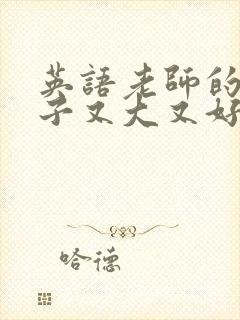 英語老師的
子又大又好
哈德